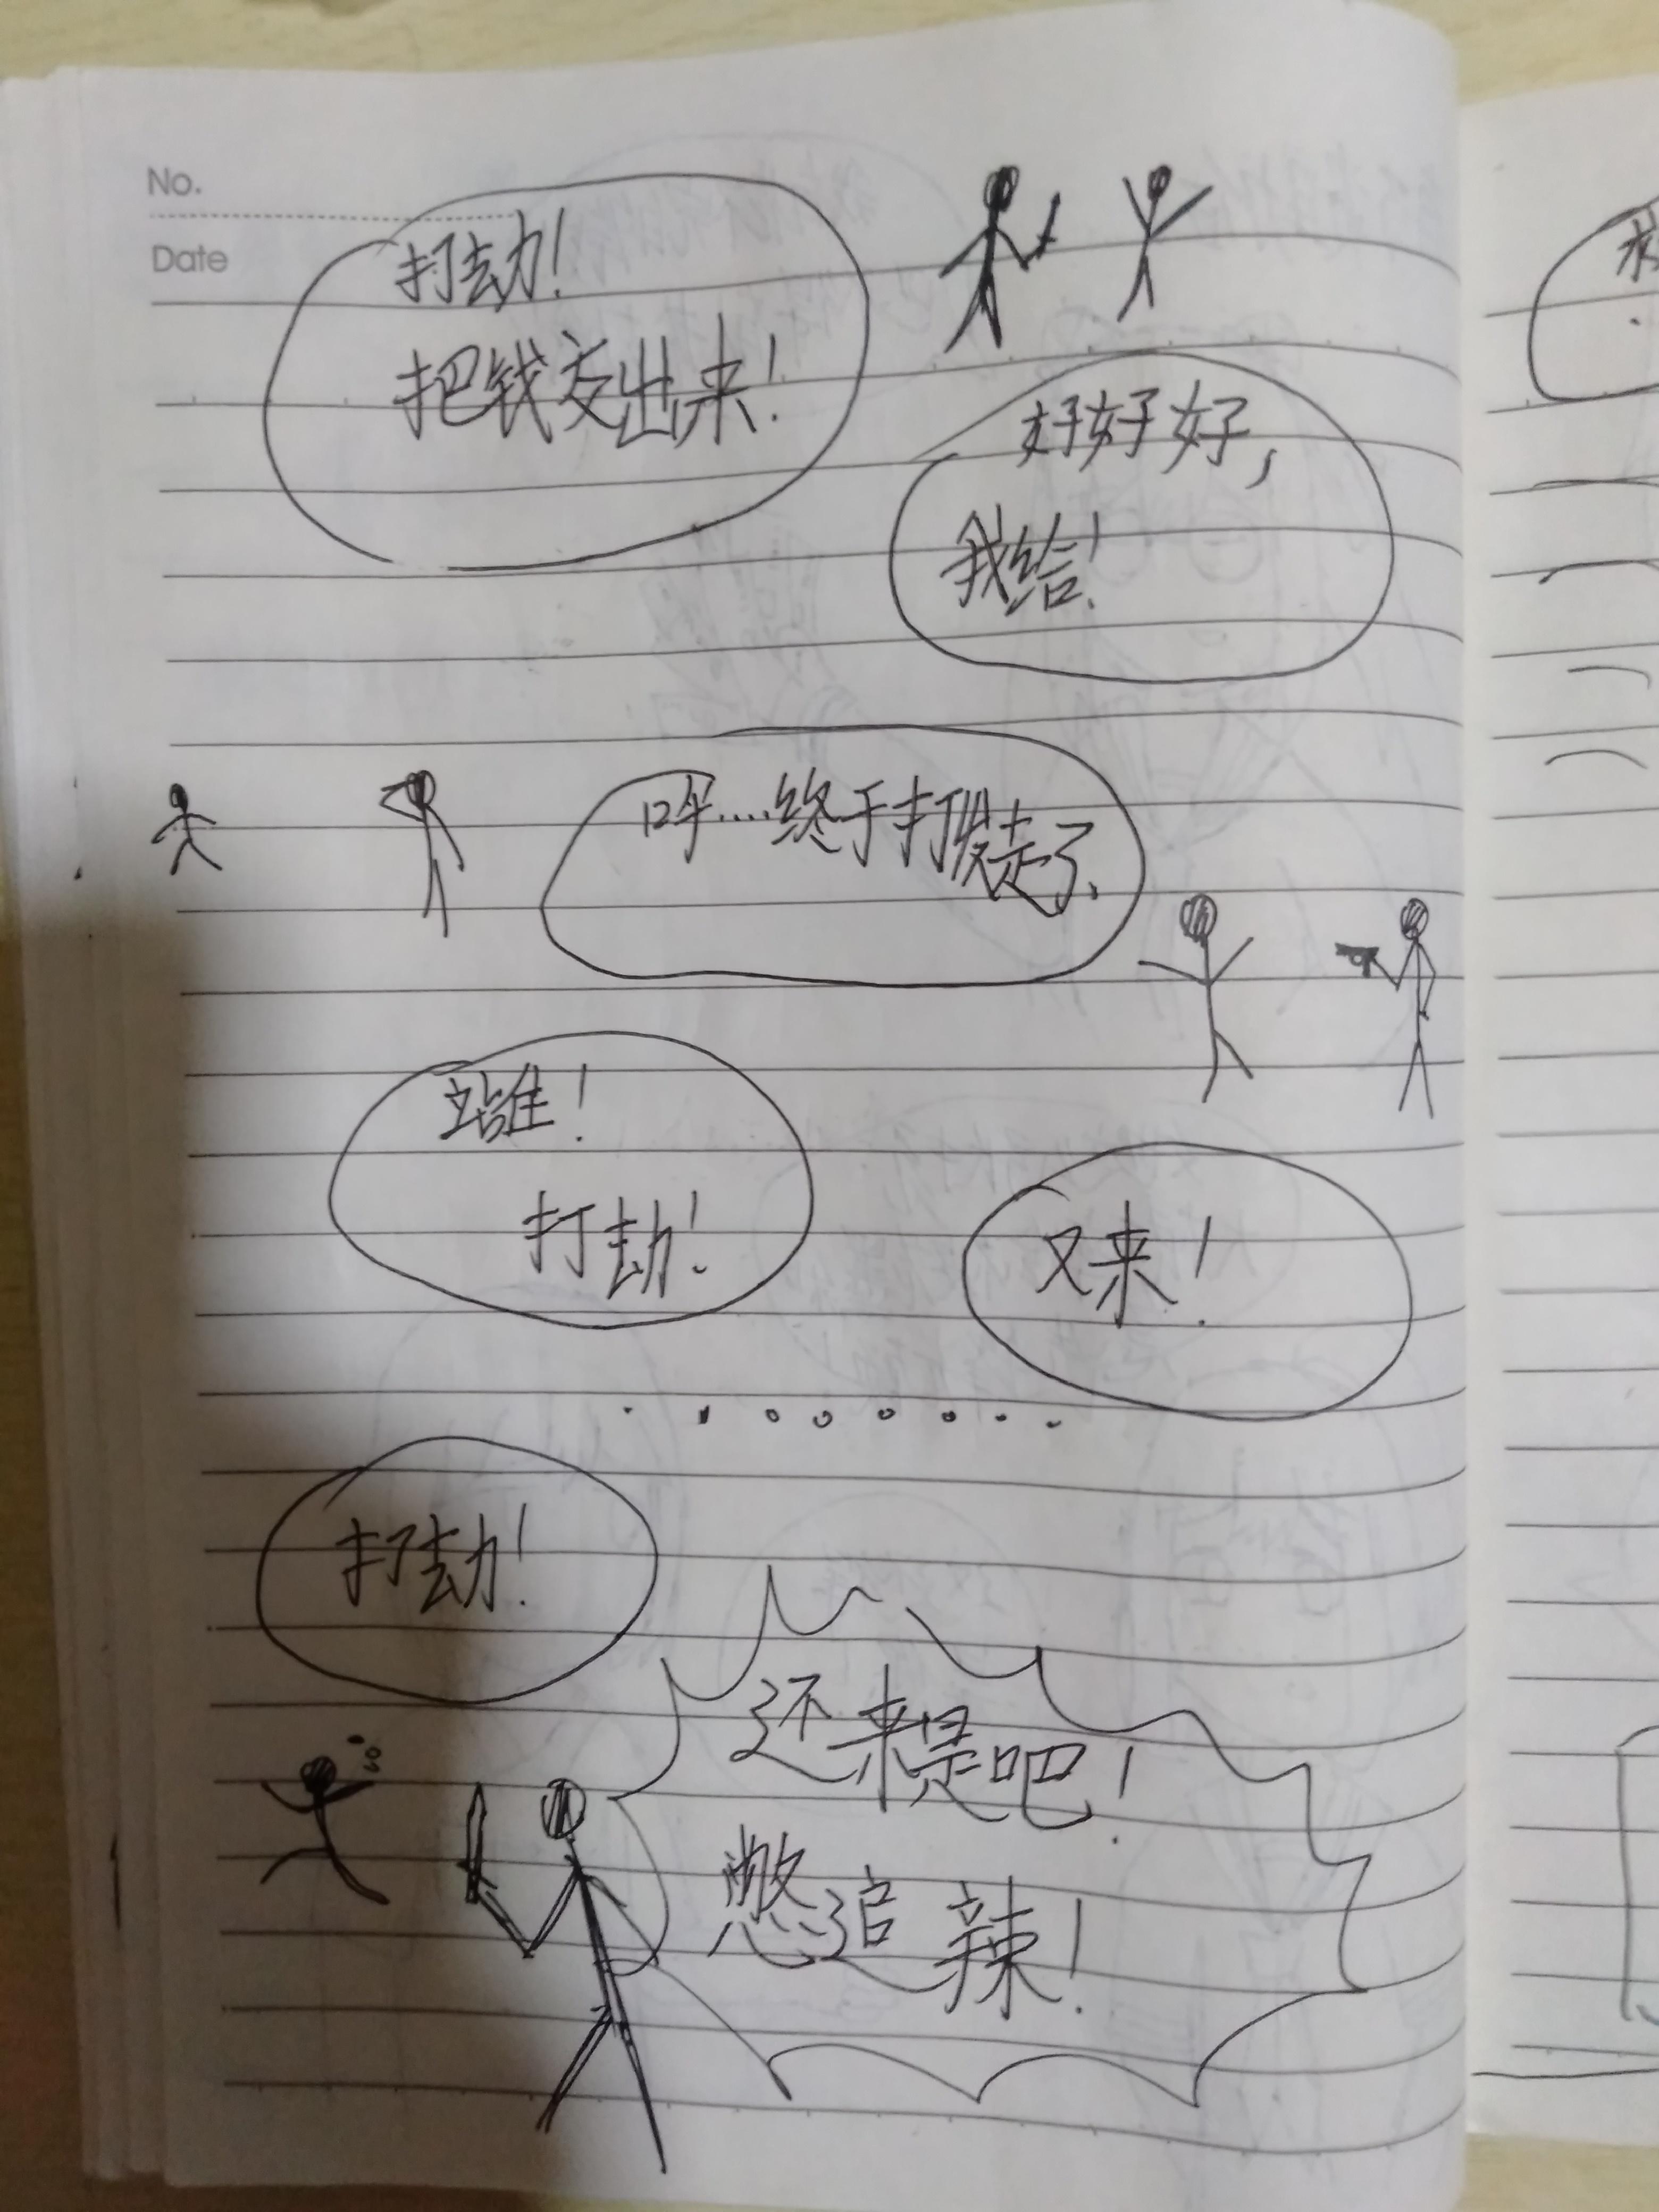 No.
Date
打劫!
把钱交出来!
好好好,
我给!
呼....终于打发走了、
站住!
打劫!
又来!
打劫!
还来是吧!
憋追辣!